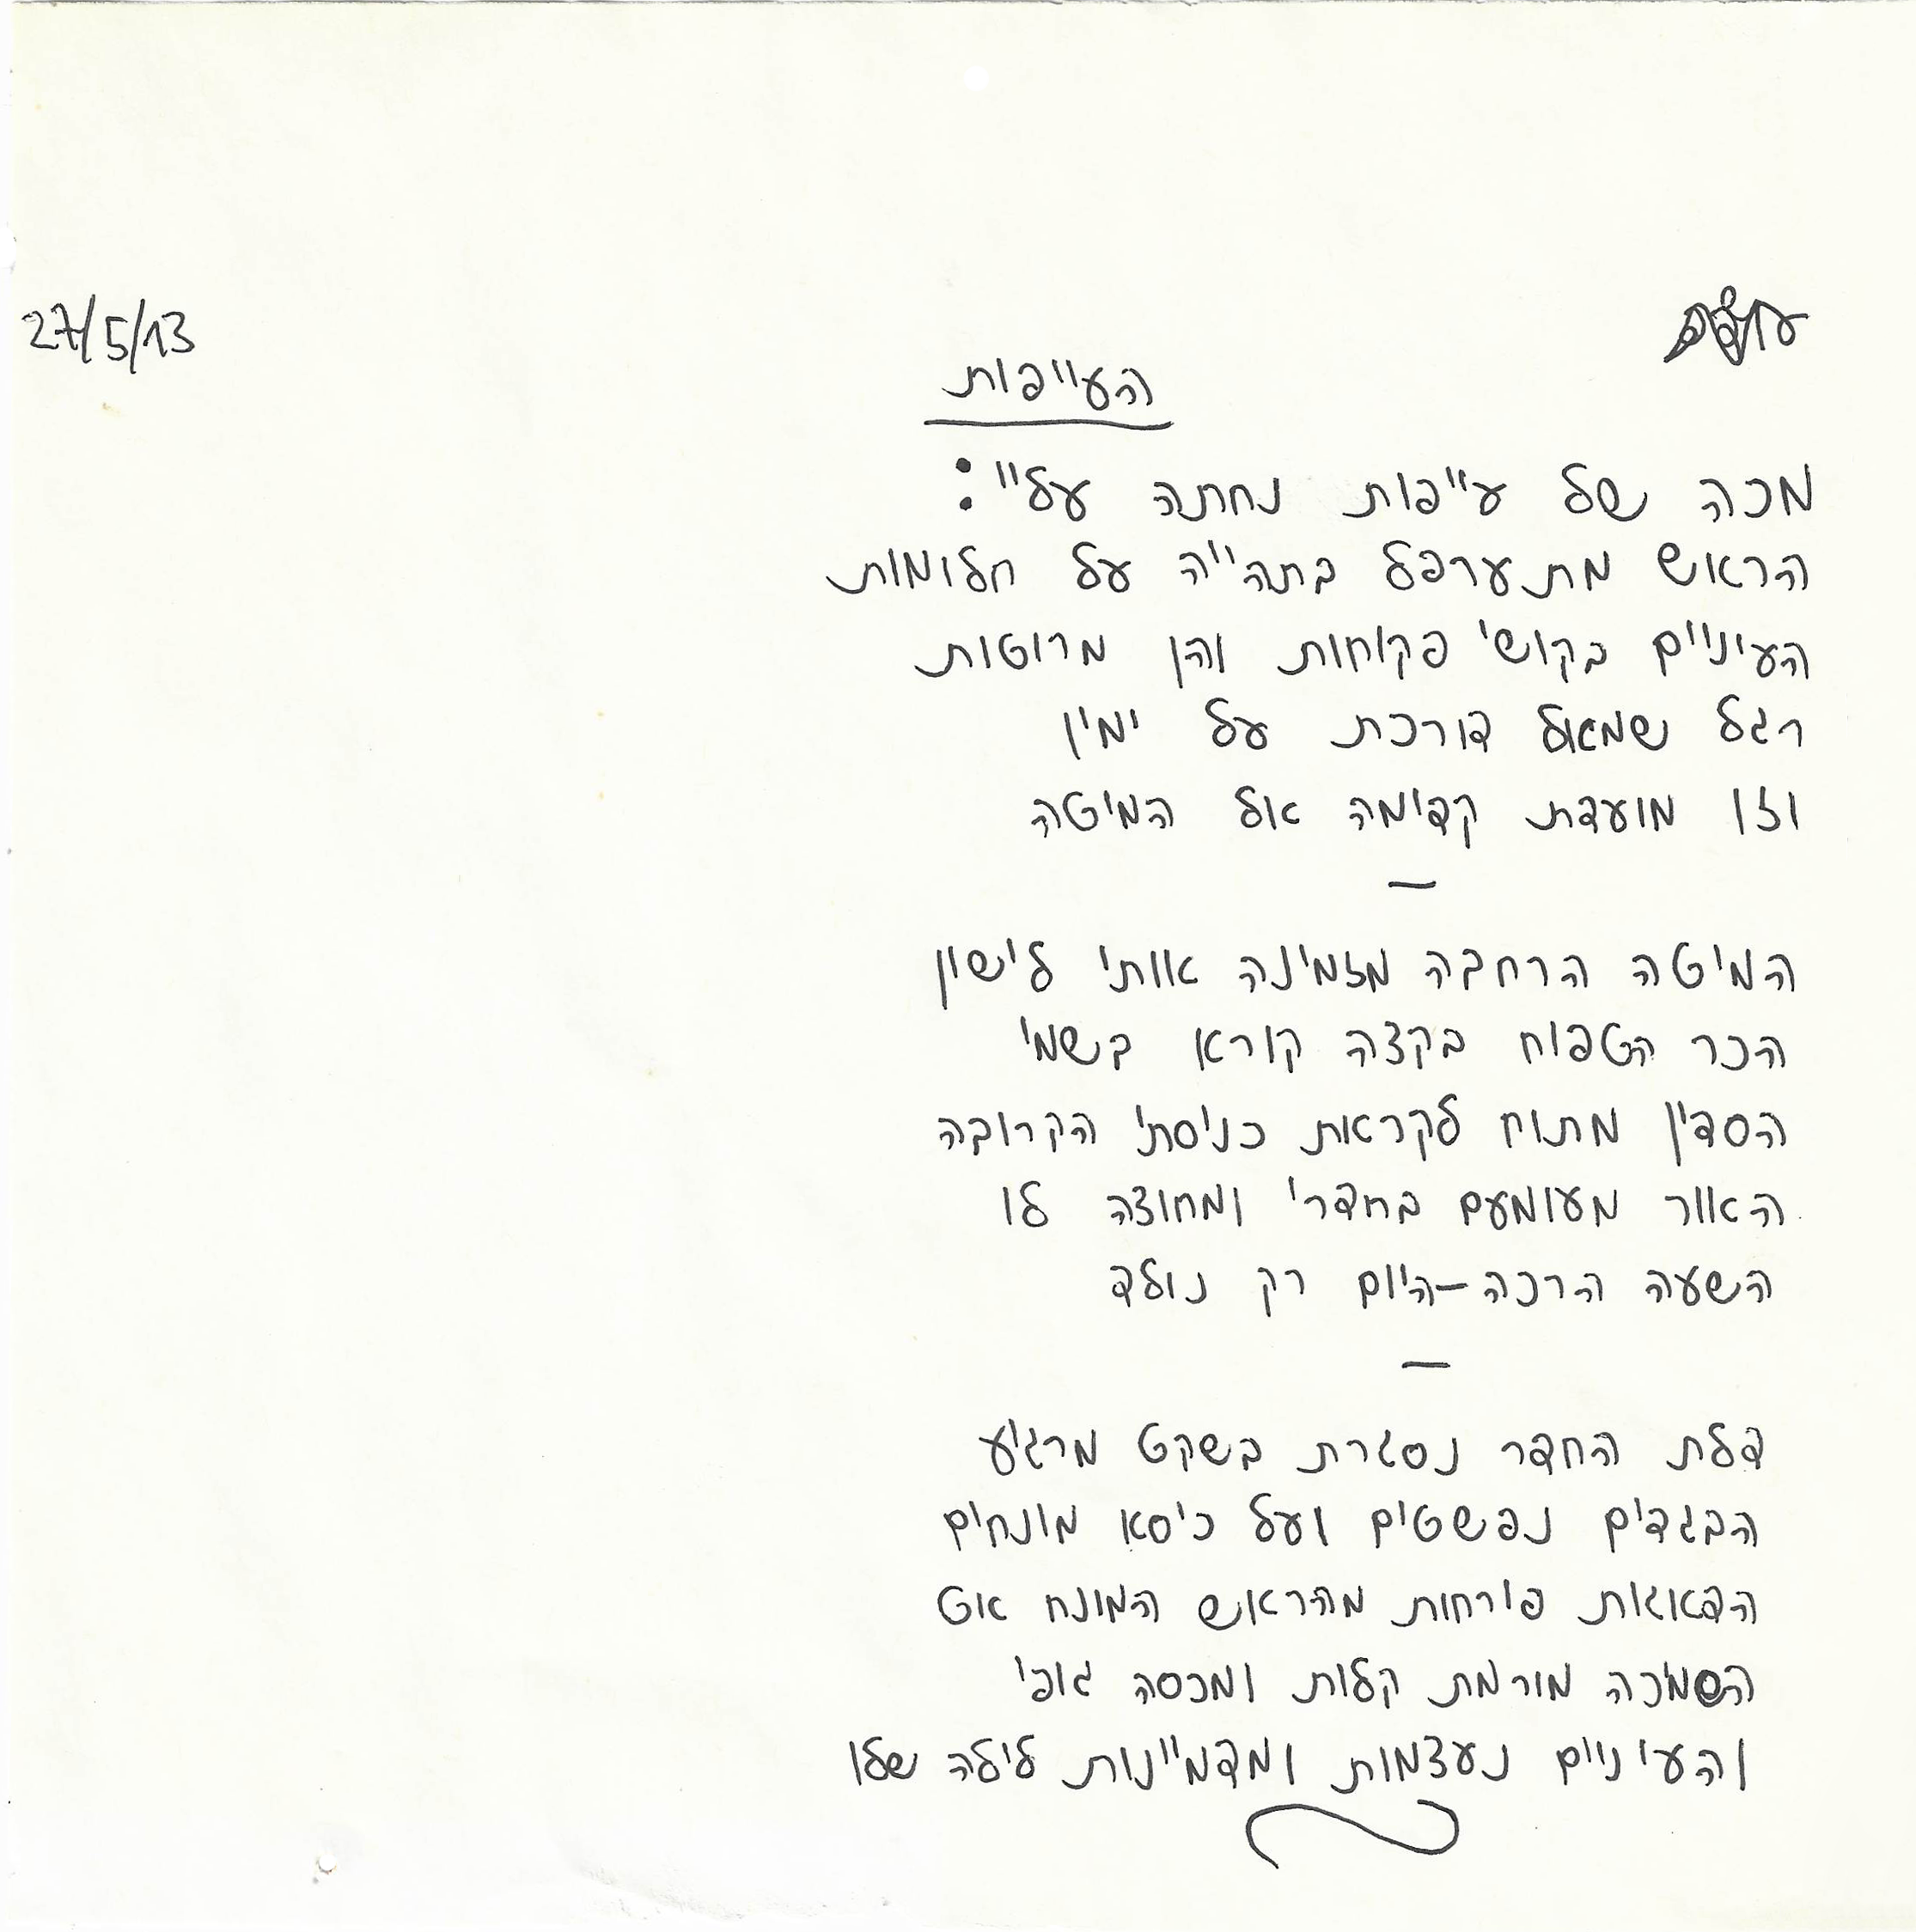 27/5/13
העייפות
מכה של עייפות נחתה עליי:
הראש מתערפל בתהייה על חלומות
העיניים בקושי פקוחות והן מרוטות
רגל שמאל דורכת על ימין
וזו מועדת קדימה אל המיטה
–
המיטה הרחבה מזמינה אותי לישון
הכר הטפוח בקצה קורא בשמי
הסדין מתוח לקראת כניסתי הקרובה
האור מעומעם בחדרי ומחוצה לו
השעה הרכה–היום רק נולד
–
דלת החדר נסגרת בשקט מרגיע
הבגדים נפשטים ועל כיסא מונחים
הדאגות פורחות מהראש המונח אט
השמיכה מורמת קלות ומכסה גופי
והעיניים נעצמות ומדמיינות לילה שלו